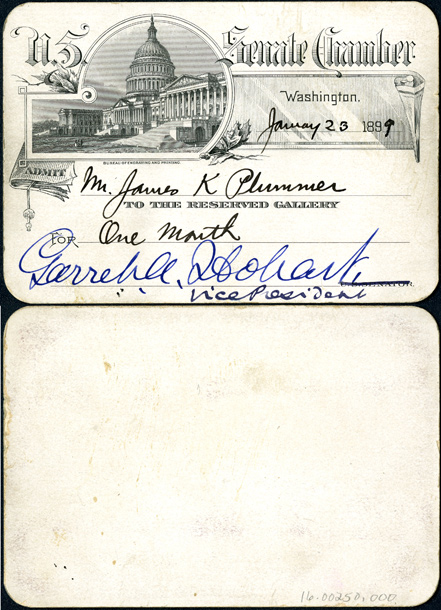 U.S. Senate Chamber
Washington,
January 23 1899
BUREAU OF ENGRAVING AND PRINTING.
ADMIT
Mr. James K Plummer
TO THE RESERVED GALLERY
FOR One Month
Garret A. Hobart.
Vice President
16.00250.000